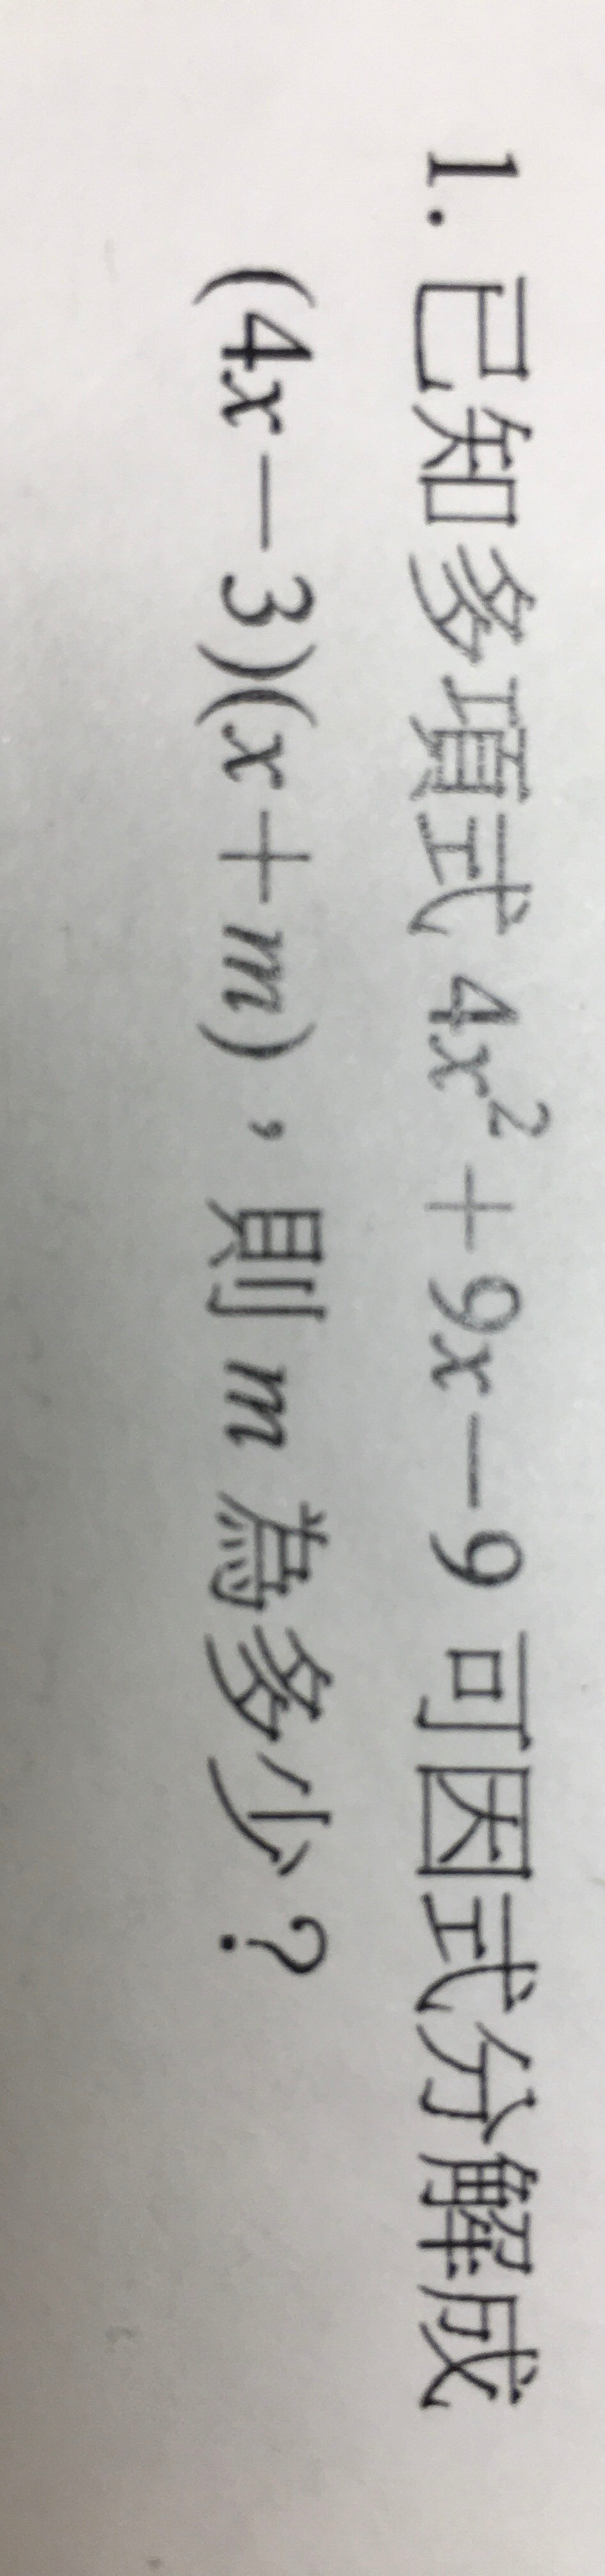 1. 已知多項式 4x² + 9x − 9 可因式分解成
(4x − 3)(x + m),則 m 為多少?